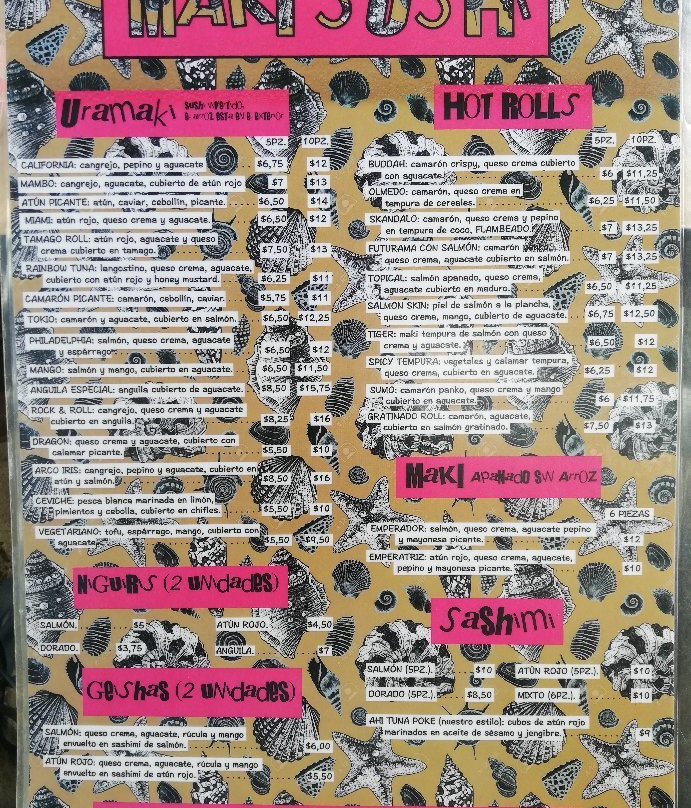 MAKI SUSHI
Uramaki
5PZ. 10PZ.
CALIFORNIA: cangrejo, pepino y aguacate $6,75 $12
MAMBO: cangrejo, aguacate, cubierto de atún rojo $7 $13
ATÚN PICANTE: atún, caviar, cebollín, picante. $6,50 $14
MIAMI: atún rojo, queso crema y aguacate. $6,50 $12
TAMAGO ROLL: atún rojo, aguacate y queso
crema cubierto en tamago. $7,50 $13
RAINBOW TUNA: langostino, queso crema, aguacate,
cubierto con atún rojo y honey mustard. $6,25 $11
CAMARÓN PICANTE: camarón, cebollín, caviar. $5,75 $11
TOKIO: camarón y aguacate, cubierto en salmón. $6,50 $12,25
PHILADELPHIA: salmón, queso crema, aguacate
y espárrago. $6,50 $12
MANGO: salmón y mango, cubierto en aguacate. $6,50 $11,50
ANGUILA ESPECIAL: anguila cubierto de aguacate. $8,50 $15,75
ROCK & ROLL: cangrejo, queso crema y aguacate
cubierto en anguila. $8,25 $16
DRAGON: queso crema y aguacate, cubierto con
calamar picante. $5,50 $10
ARCO IRIS: cangrejo, pepino y aguacate, cubierto en
atún y salmón. $8,50 $16
CEVICHE: pesca blanca marinada en limón,
pimientos y cebolla, cubierto en chifles. $5,50 $10
VEGETARIANO: tofu, espárrago, mango, cubierto con
aguacate $5,50 $9,50
NiGuiRiS (2 UNidadeS)
SALMÓN. $5 ATÚN ROJO. $4,50
DORADO. $3,75 ANGUILA. $7
GeiShas (2 UNidadeS)
SALMÓN: queso crema, aguacate, rúcula y mango
envuelto en sashimi de salmón. $6,00
ATÚN ROJO: queso crema, aguacate, rúcula y mango
envuelto en sashimi de atún rojo. $5,50
HOT ROLLS
5PZ. 10PZ.
BUDDAH: camarón crispy, queso crema cubierto
con aguacate. $6 $11,25
OLMEDO: camarón, queso crema en
tempura de cereales. $6,25 $11,50
SKANDALO: camarón, queso crema y pepino
en tempura de coco, FLAMBEADO. $7 $13,25
FUTURAMA CON SALMÓN: camarón
queso crema, aguacate cubierto en salmón. $7 $13,25
TOPICAL: salmón apanado, queso crema,
aguacate cubierto en maduro. $6,50 $11,25
SALMON SKIN: piel de salmón a la plancha,
queso crema, mango, cubierto de aguacate. $6,75 $12,50
TIGER: maki tempura de salmón con queso
crema y aguacate. $6,50 $12
SPICY TEMPURA: vegetales y calamar tempura,
queso crema, cubierto en aguacate. $6,25 $12
SUMO: camarón panko, queso crema y mango
cubierto en aguacate. $6 $11,75
GRATINADO ROLL: camarón, aguacate,
cubierto en salmón gratinado. $7,50 $13
MaKI APaNaDO SIN ArrOZ
6 PIEZAS
EMPERADOR: salmón, queso crema, aguacate pepino
y mayonesa picante. $12
EMPERATRIZ: atún rojo, queso crema, aguacate,
pepino y mayonesa picante. $10
SaShimi
SALMÓN (5PZ.). $10 ATÚN ROJO (5PZ.). $10
DORADO (5PZ.). $8,50 MIXTO (6PZ.). $10
AHI TUNA POKE (nuestro estilo): cubos de atún rojo
marinados en aceite de sésamo y jengibre. $9